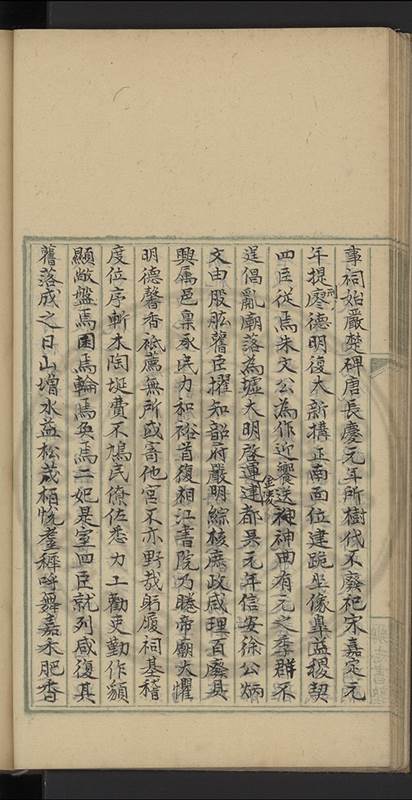 事祠始嚴楚碑唐長慶元年所樹代不廢祀宋嘉定元
年提刑廖德明復大新構正南面位建跪坐像皐益稷契
四臣從焉朱文公為作迎饗送神神曲有元之季群不
逞倡亂廟落為墟大明啓運建都吳元年信安徐公炳
文由股肱瞽臣擢知韶府嚴明綜核庶政咸理百廢具
興属邑稟承民力和裕首復相江書院乃睠帝廟大懼
明德馨香祗薦無所或寄他宮不亦野哉躬履祠基稽
度位序斬木陶埏費不鳩民僚佐悉力工勸吏勤作額
顯敞盤焉囷焉輪焉奐焉二妃是室四臣就列咸復其
舊落成之日山增水益松茂栢悅耄穉呼舞嘉禾肥香